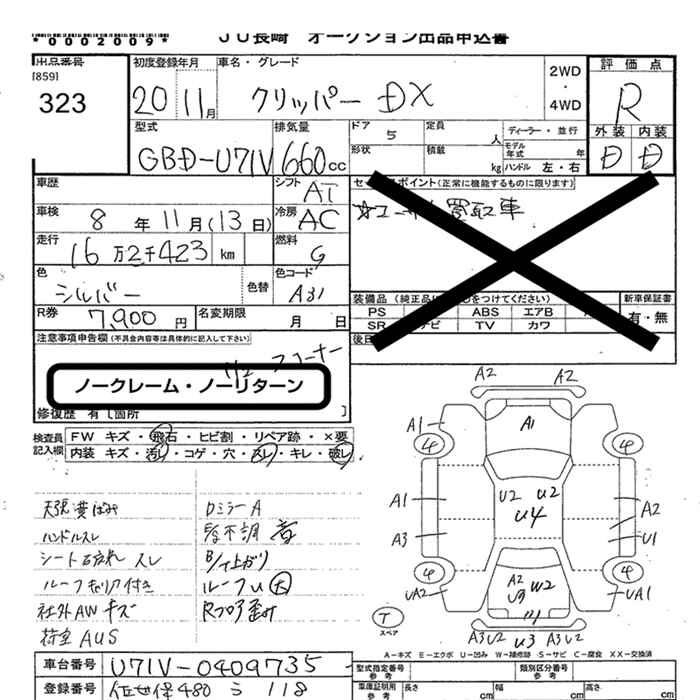 *0002009* JU長崎 オークション出品申込書
出品番号 初度登録年月 車名・グレード 評価点
[859] 2WD
323 20 11月 クリッパー DX ・ R
4WD
型式 排気量 ドア 5 定員 人 ディーラー・並行 外装 内装
GBD-U71V 660cc 形状 積載 kg モデル年式 年 D D
ハンドル 左・右
車歴 シフト AT セールスポイント(正常に機能するものに限ります)
車検 8年11月(13日) 冷房 AC 買取車
走行 16万2千423 km 燃料 G
色 シルバー 色替 色コード A31
装備品(純正品に○をつけてください) 新車保証書
R券 7,900円 名変期限 月 日 PS ABS エアB 有・無
SR ナビ TV カワ
注意事項申告欄(不具合内容等は具体的に記入して下さい) 後日
1/2 コーナー
ノークレーム・ノーリターン
修復歴 有[箇所 ]
検査員 FW キズ・飛石・ヒビ割・リペア跡・×要
記入欄 内装 キズ・汚レ・コゲ・穴・スレ・キレ・破レ
天張黄ばみ DミラーA
ハンドルスレ 不調
シート破れ スレ B/下上がり
ルーフキャリア付き ルーフU 大
社外AW キズ Rフロア歪み
AUS
A2 A2
A1 A1
4 4
A1 U2 U2 A2
U4
A3 U1
4 4
UA2 A2 W2 UA1
U3
T
スペア A3U2 U3 A3U2
A-キズ E-エクボ U-凹み W-補修跡 S-サビ C-腐食 XX-交換済
車台番号 U71V-0409735 型式指定番号 参考 類別区分番号 参考
登録番号 佐世保480 う 118 車庫証明用 参考 長さ cm 幅 cm 高さ cm